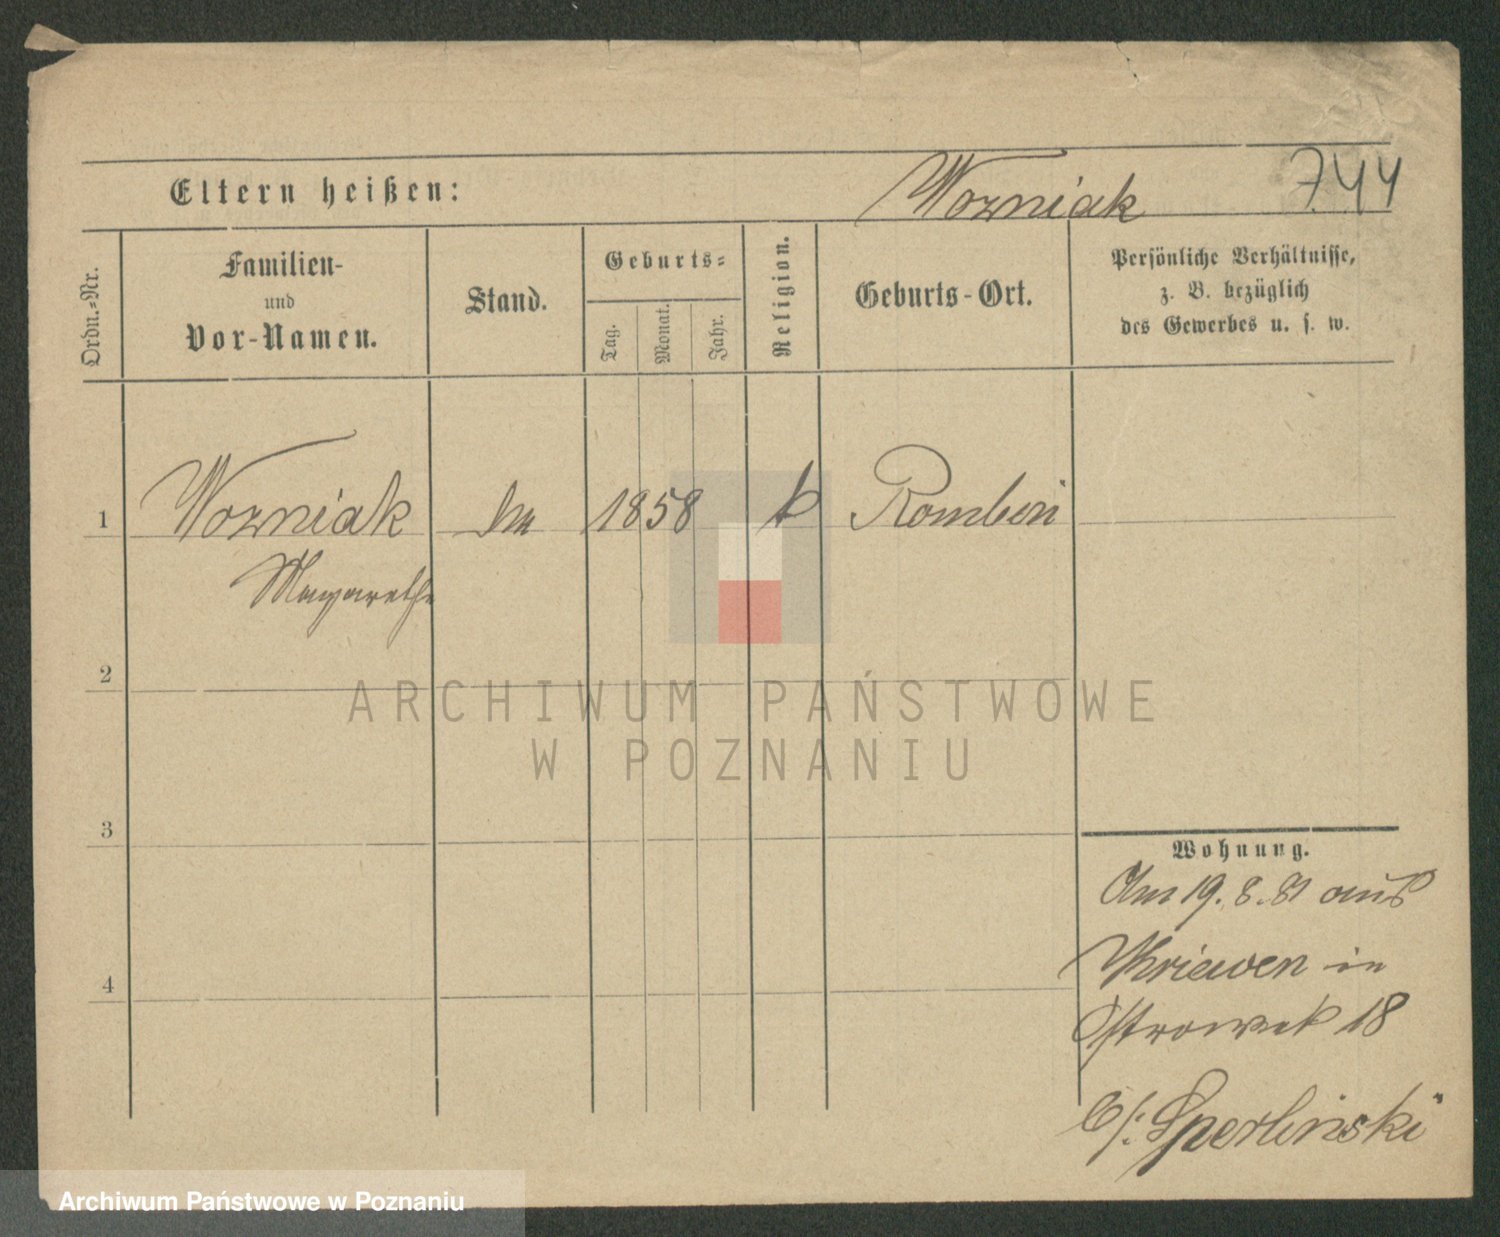 Eltern heißen: Wozniak 744
Ordn.-Nr.
Familien-
und
Vor-Namen.
Stand.
Geburts-
Tag.
Monat.
Jahr.
Religion.
Geburts-Ort.
Persönliche Verhältnisse,
z. B. bezüglich
des Gewerbes u. s. w.
1 Wozniak 1858 k Rombin
Magarethe
2
ARCHIWUM PAŃSTWOWE
W POZNANIU
3
Wohnung.
Am 19. 8. 81 aus
Kriewen in
4
Ostrowek 18
b/: Sperlinski
Archiwum Państwowe w Poznaniu